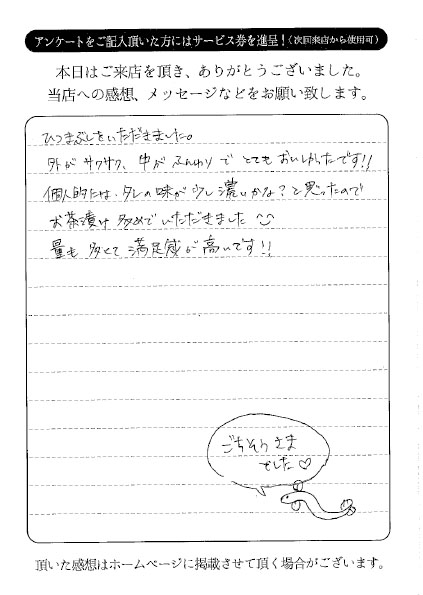 アンケートをご記入頂いた方にはサービス券を進呈！（次回来店から使用可）
本日はご来店を頂き、ありがとうございました。
当店への感想、メッセージなどをお願い致します。
ひつまぶしをいただきました。
外がサクサク、中がふんわりでとてもおいしかったです!!
個人的には、タレの味が少し濃いかな？と思ったので
お茶漬け多めでいただきました
量も多くて満足感が高いです!!
ごちそうさま
でした♡
頂いた感想はホームページに掲載させて頂く場合がございます。